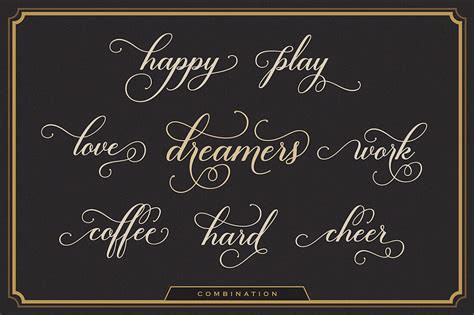 happy play
love dreamers work
coffee hard cheer
COMBINATION